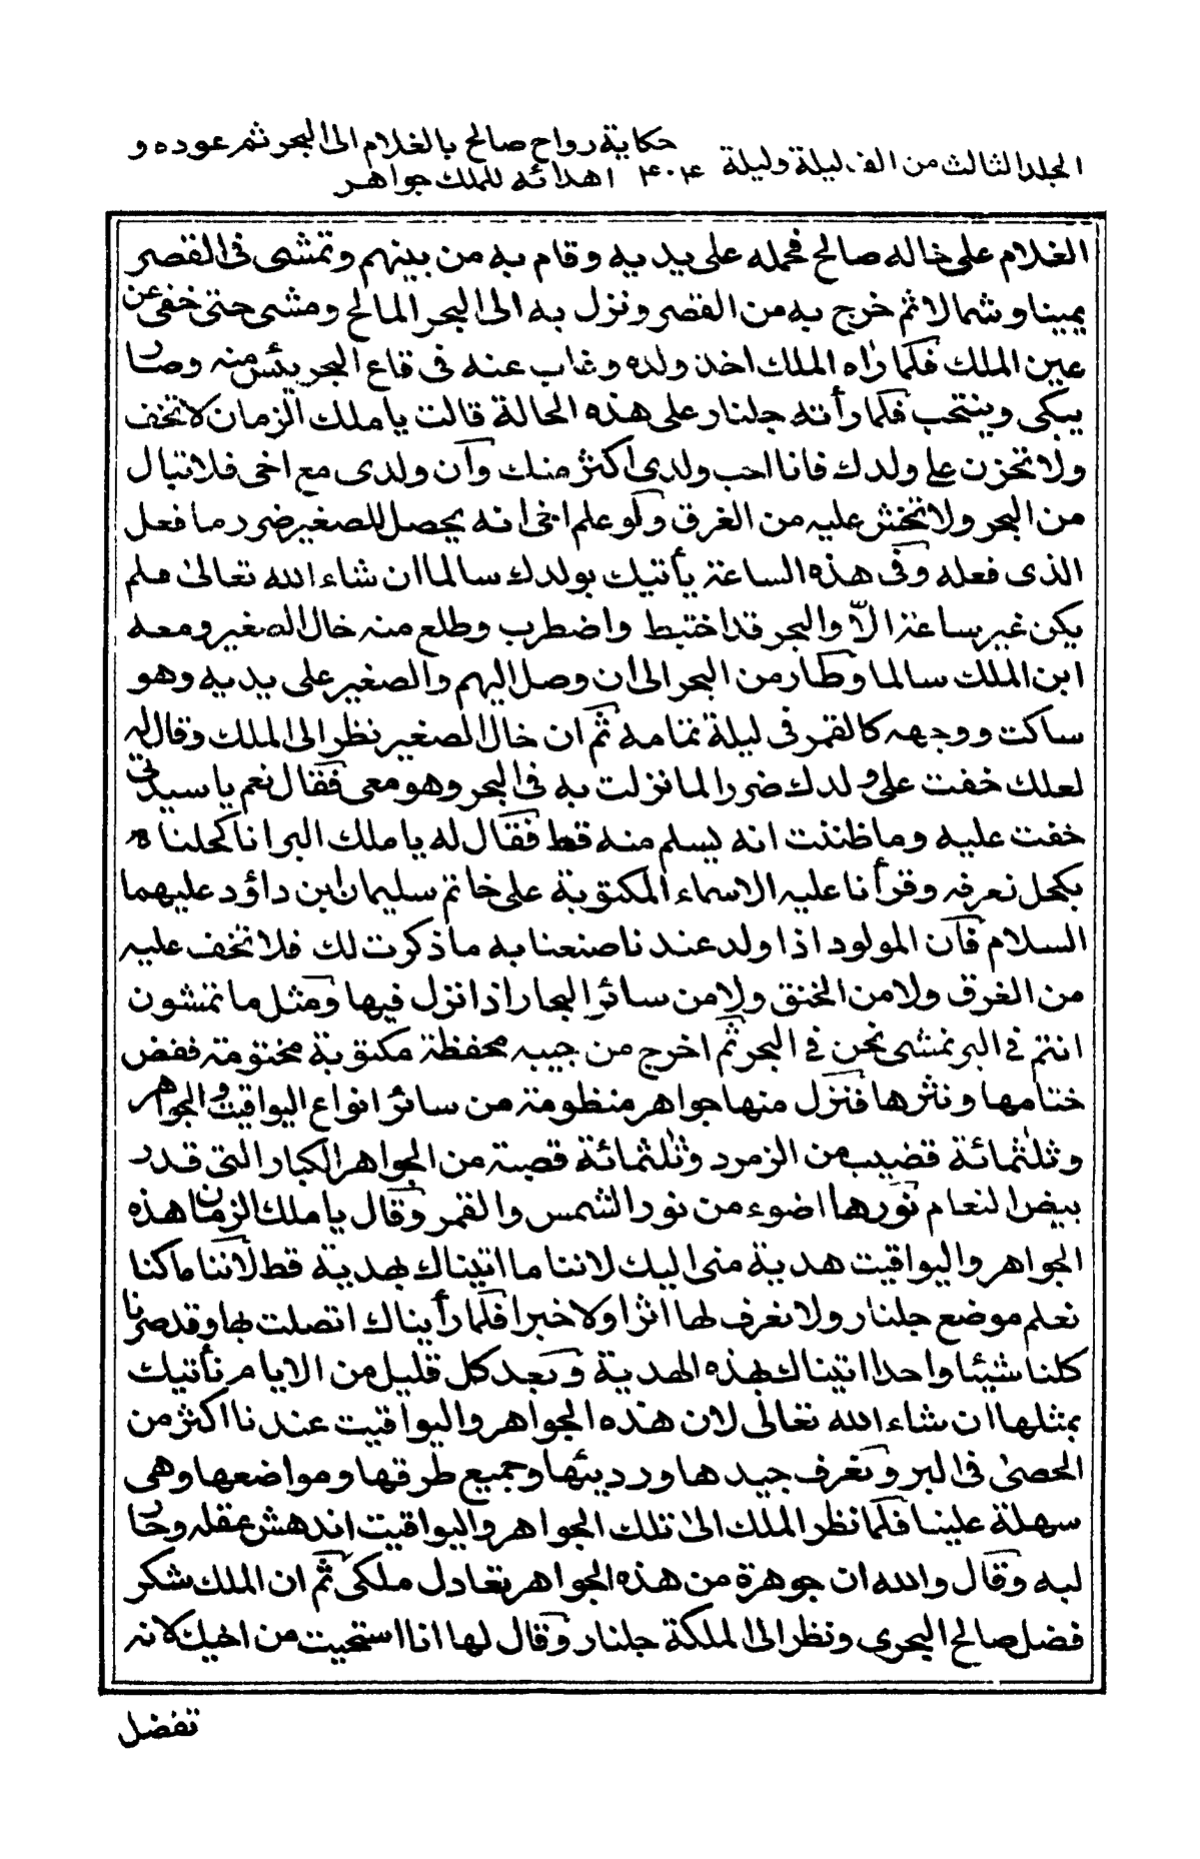 المجلد الثالث من الف ليلة وليلة ٤٠٤ حكاية رواح صالح بالغلام الى البحر ثم عوده و
اهدائه للملك جواهر
الغلام على خاله صالح فحمله على يديه وقام به من بينهم وتمشى فى القصر
يمينا وشمالا ثم خرج به من القصر ونزل به الى البحر المالح ومشى حتى خفى عن
عين الملك فلما رٰاه الملك اخذ ولده وغاب عنه فى قاع البحر يئس منه وصار
يبكى وينتحب فلما رأته جلنار على هذه الحالة قالت يا ملك الزمان لا تخف
ولا تحزن على ولدك فانا احب ولدى اكثر منك وان ولدى مع اخى فلا تبال
من البحر ولا تخش عليه من الغرق ولو علم اخى انه يحصل للصغير ضرر ما فعل
الذى فعله وفى هذه الساعة يأتيك بولدك سالما ان شاء الله تعالىٰ فلم
يكن غير ساعة الّا والبحر قد اختبط واضطرب وطلع منه خال الصغير ومعه
ابن الملك سالما وطار من البحر الى ان وصل اليهم والصغير على يديه وهو
ساكت ووجهه كالقمر فى ليلة تمامه ثم ان خال الصغير نظر الى الملك وقال له
لعلك خفت على ولدك ضررا لما نزلت به فى البحر وهو معى فقال نعم يا سيدى
خفت عليه وما ظننت انه يسلم منه قط فقال له يا ملك البر انا كحلناه
بكحل نعرفه وقرأنا عليه الاسماء المكتوبة على خاتم سليمان ابن داؤد عليهما
السلام فان المولود اذا ولد عندنا صنعنا به ما ذكرت لك فلا تخف عليه
من الغرق ولا من الخنق ولا من سائر البحار اذا نزل فيها ومثل ما تمشون
انتم فى البر نمشى نحن فى البحر ثم اخرج من جيبه محفظة مكتوبة مختومة ففض
ختامها ونثرها فنزل منها جواهر منظومة من سائر انواع اليواقيت والجواهر
وثلٰثمائة قضيب من الزمرد وثلٰثمائة قصبة من الجواهر الكبار التى قدر
بيض النعام نورها اضوء من نور الشمس والقمر وقال يا ملك الزمان هذه
الجواهر واليواقيت هدية منى اليك لاننا ما اتيناك بهدية قط لاننا ما كنا
نعلم موضع جلنار ولا نعرف لها اثرا ولا خبرا فلما رأيناك اتصلت بها وقد صرنا
كلنا شيئا واحدا اتيناك بهذه الهدية وبعد كل قليل من الايام نأتيك
بمثلها ان شاء الله تعالىٰ لان هذه الجواهر واليواقيت عندنا اكثر من
الحصىٰ فى البر ونعرف جيدها ورديئها وجميع طرقها ومواضعها وهى
سهلة علينا فلما نظر الملك الىٰ تلك الجواهر واليواقيت اندهش عقله وحار
لبه وقال والله ان جوهرة من هذه الجواهر تعادل ملكى ثم ان الملك شكر
فضل صالح البحرى ونظر الى الملكة جلنار وقال لها انا استحيت من اخيك لانه
تفضل